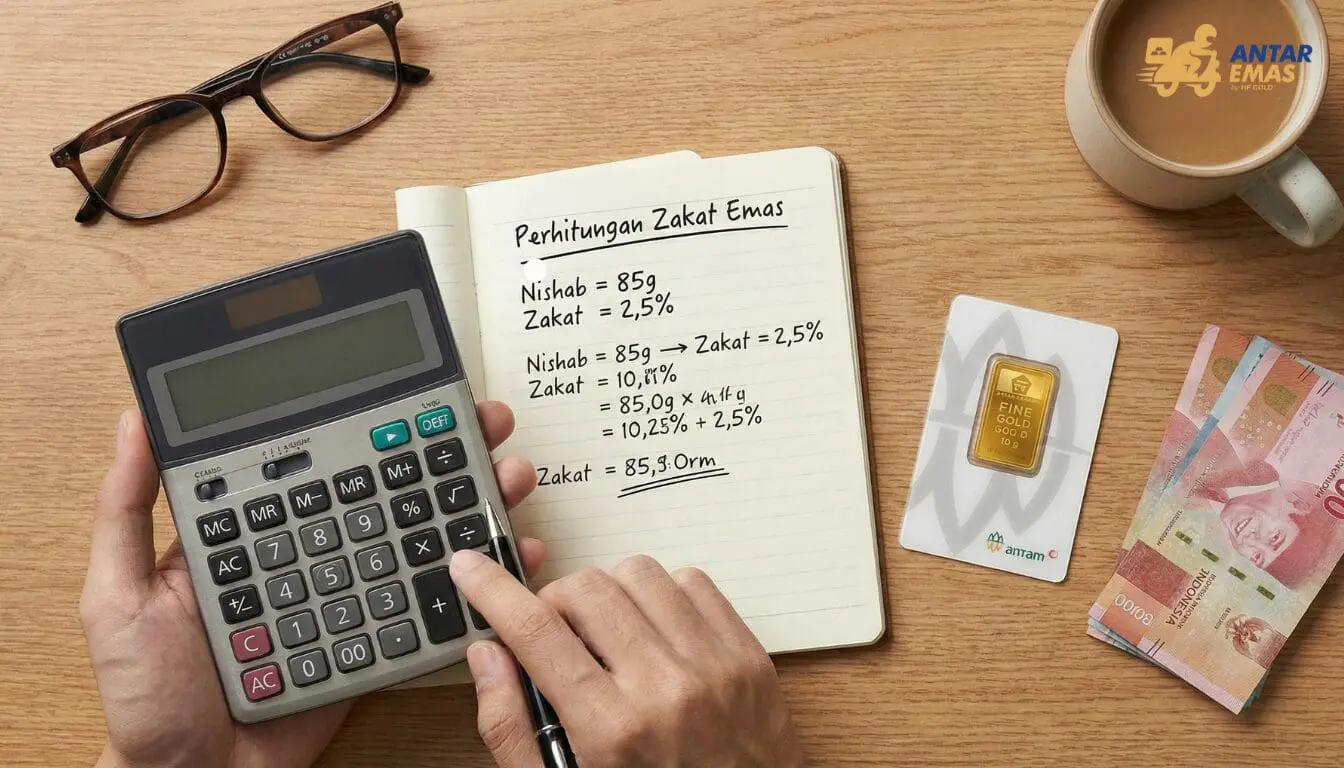 ANTAR
EMAS
by HF GOLD
Perhitungan Zakat Emas
Nishab = 85g
Zakat = 2,5%
Nishab = 85g → Zakat = 2,5%
Zakat =
= 85,0g ×
= 10,25% + 2,5%
Zakat = 85,9:0rm
FINE
GOLD
10 g
antam
INDONESIA
MC
MR
M−
MR
M+
÷
AC
7
8
9
%
√
+/−
4
5
6
×
÷
C
1
2
3
+
AC
0
00
·